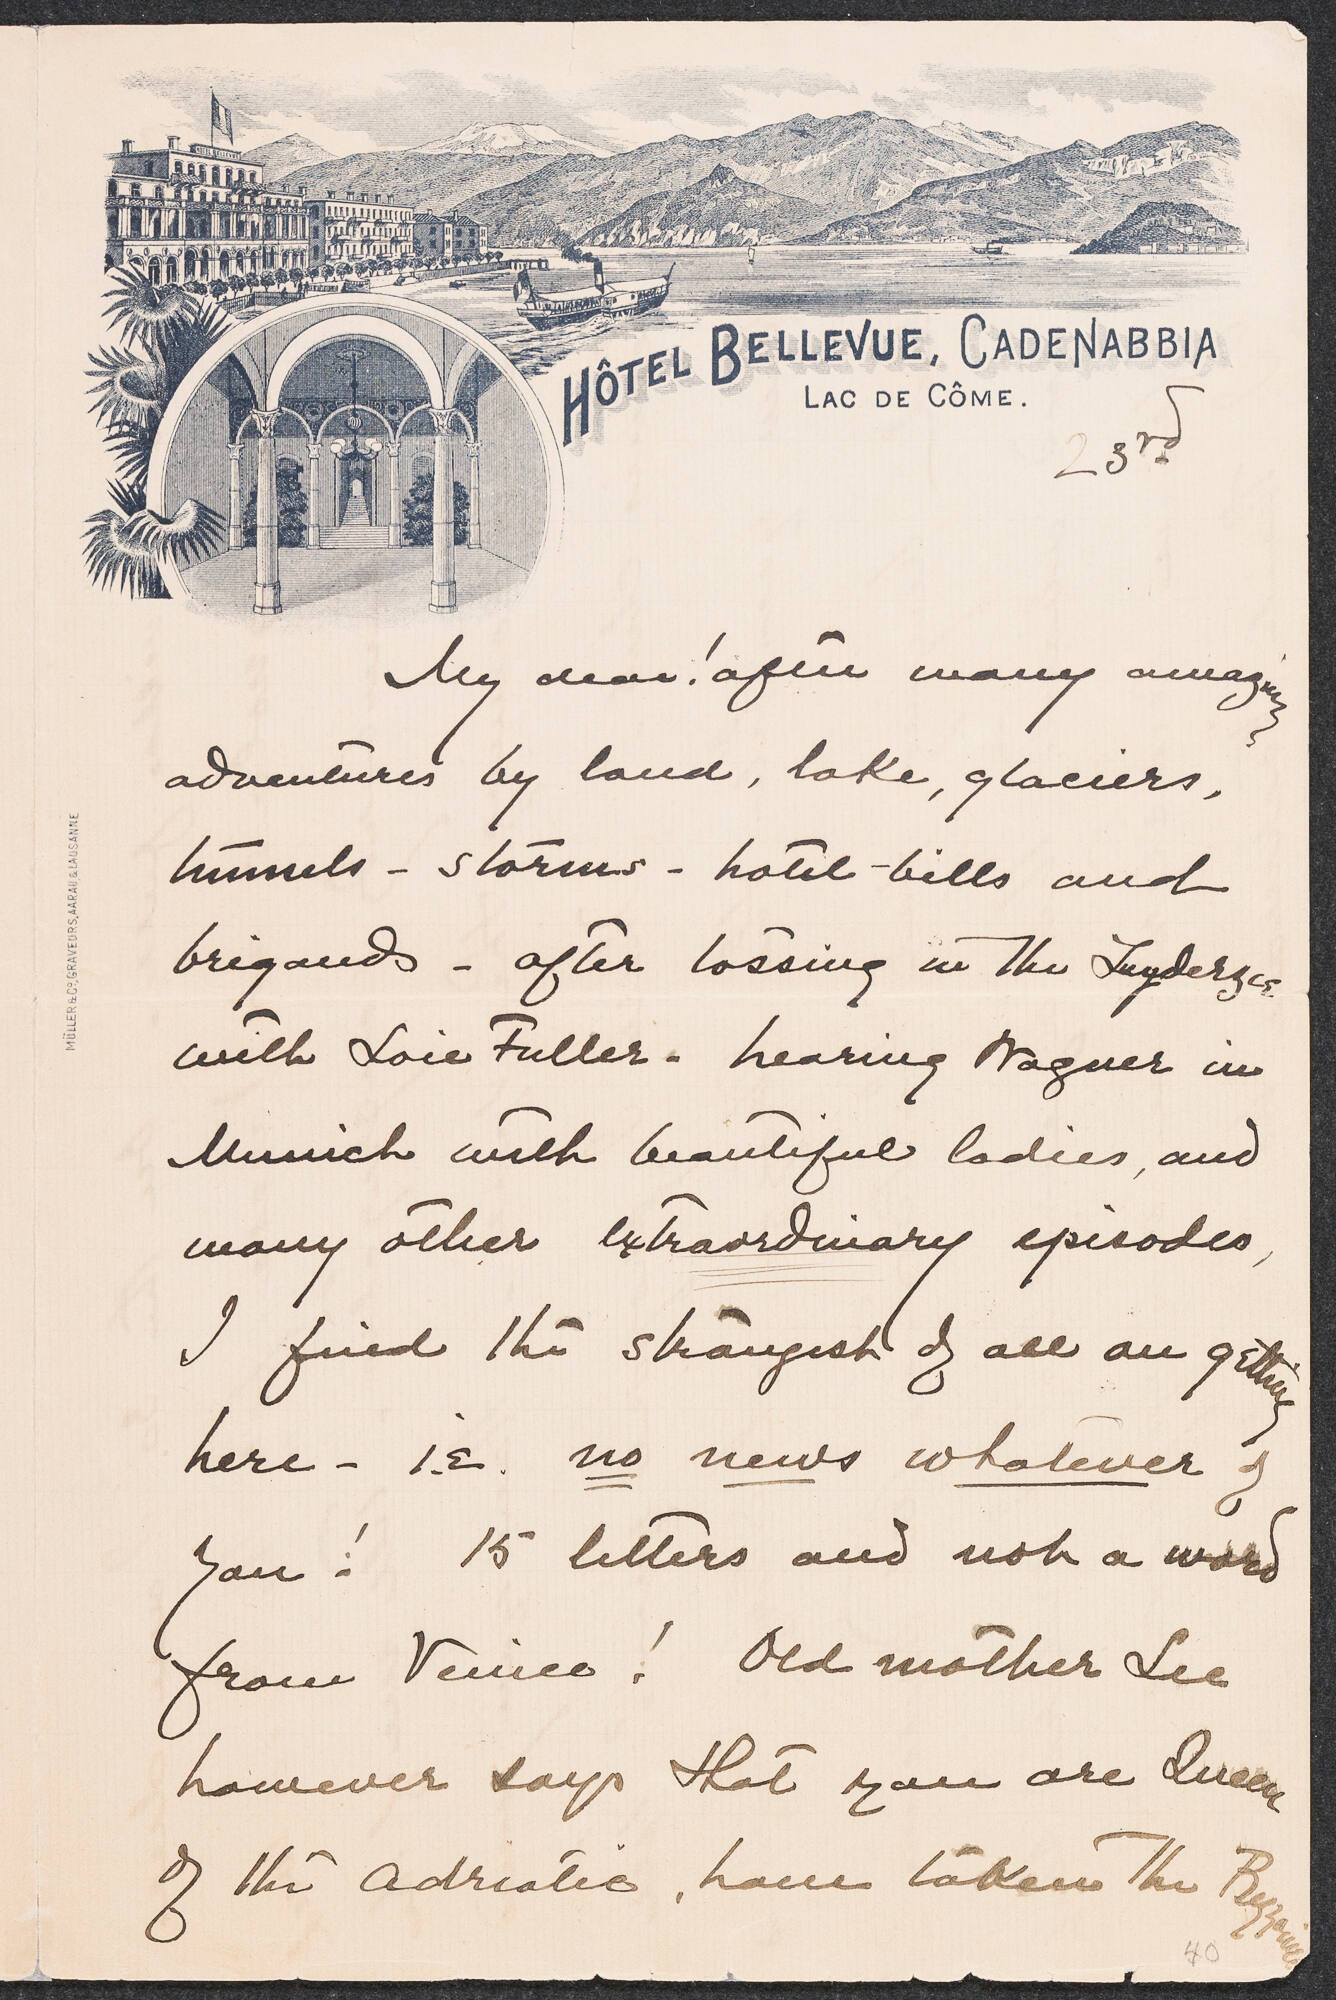 HÔTEL BELLEVUE
HÔTEL BELLEVUE, CADENABBIA
LAC DE CÔME.
23rd
My dear! after many amazing
adventures by land, lake, glaciers,
tunnels - storms - hotel-bills and
brigands - after tossing in the Zuyderzee
with Loie Fuller - hearing Wagner in
Munich with beautiful ladies, and
many other extraordinary episodes,
I find the strangest of all on getting
here - i.e. no news whatever of
you! 15 letters and not a word
from Venice! Old mother Lee
however says that you are Queen
of the Adriatic, have taken the
40
MÜLLER & CO, GRAVEURS, AARAU & LAUSANNE